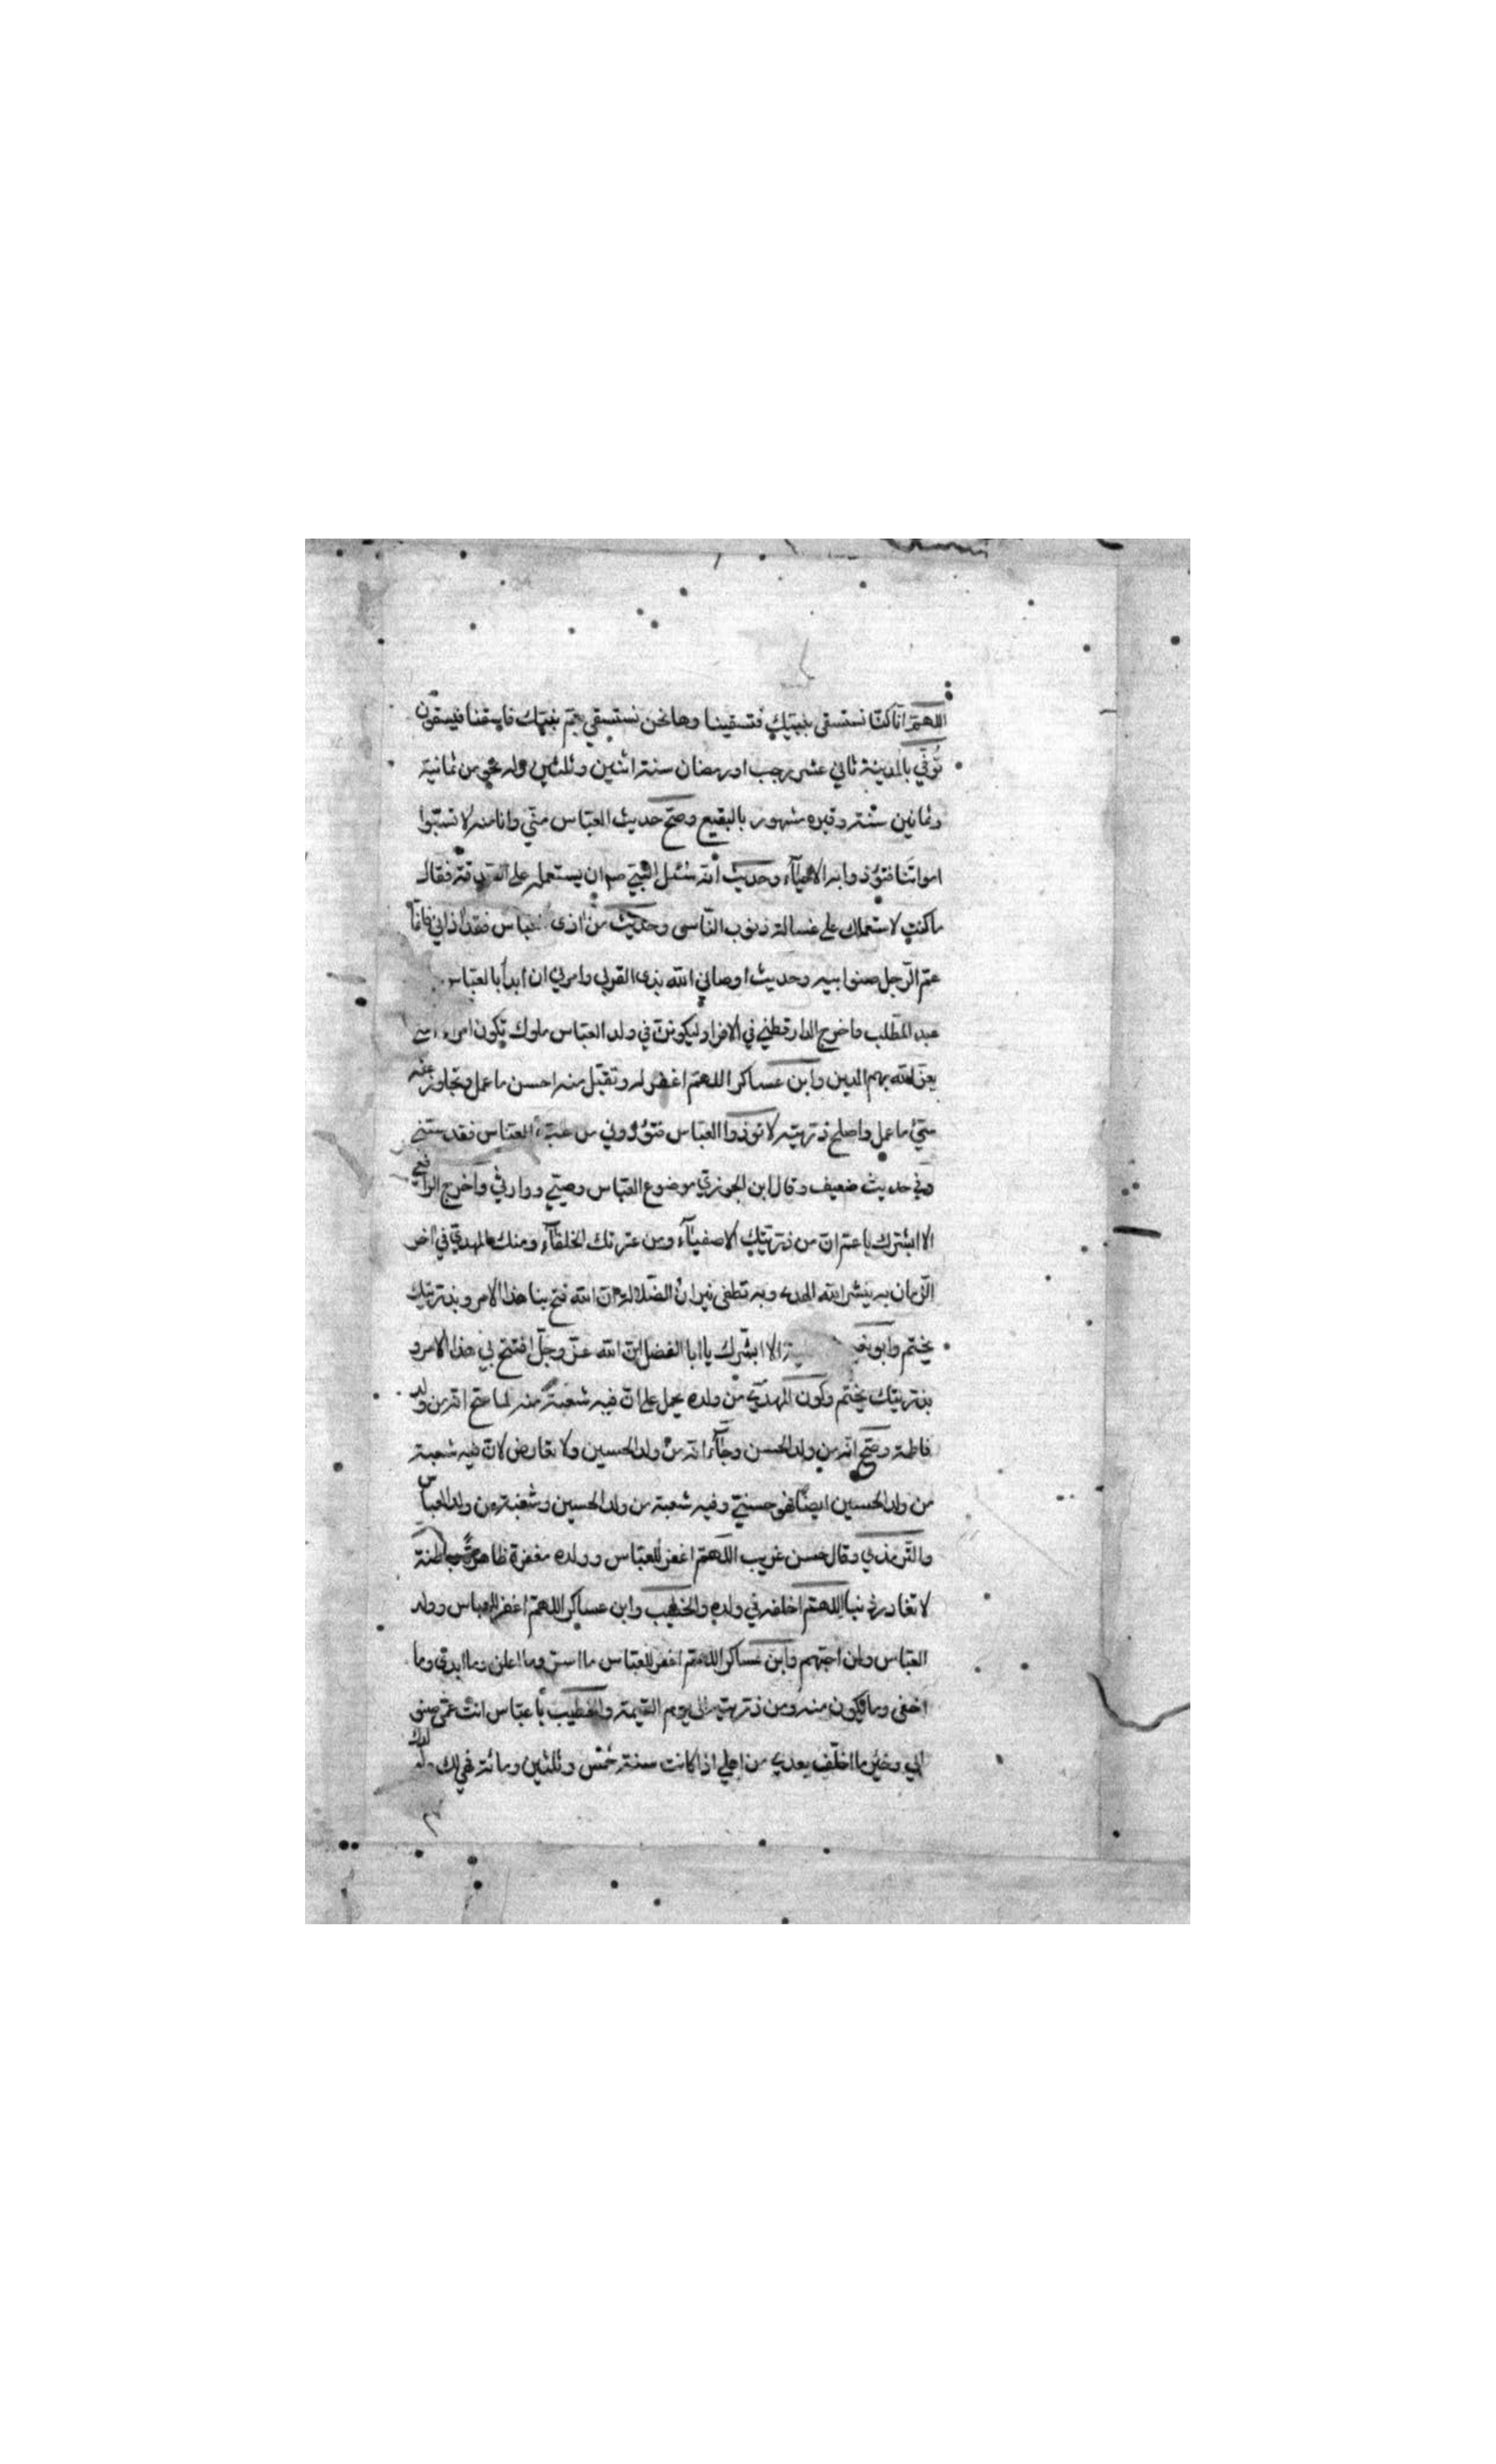 اللهم انا كنا نستسقي بنبيك فتسقينا وها نحن نستسقي بعم نبيك فاسقنا فيسقون
توفي بالمدينة ثاني عشر رجب او رمضان سنة اثنين وثلثين وله نحو من ثمانية
وثمانين سنة وقبره مشهور بالبقيع وصح حديث العباس مني وانا منه لا تسبوا
امواتنا فتؤذوا به الاحياء وحديث انه سئل النبي صم ان يستعمله على الصدقة فقال
ما كنت لاستعملك على غسالة ذنوب الناس وحديث من اذى العباس فقد اذاني فانما
عم الرجل صنو ابيه وحديث اوصاني الله بذي القربى وامرني ان ابدأ بالعباس
عبد المطلب واخرج الدارقطني في الافراد ليكونن في ولد العباس ملوك تكون امراء امتي
يعز الله بهم الدين وابن عساكر اللهم اغفر له وتقبل منه احسن ما عمل وتجاوز عنه
سيئ ما عمل واصلح ذريته لا تؤذوا العباس فتؤذوني من سب العباس فقد سبني
وفي حديث ضعيف وقال ابن الجوزي موضوع العباس وصيي ووارثي واخرج الرافعي
الا ابشرك يا عم ان من ذريتك الاصفياء ومن عترتك الخلفاء ومنك المهدي في اخر
الزمان به ينشر الله الهدى وبه تطفى نيران الضلالة ان الله فتح بنا هذا الامر وبذريتك
يختم وابو نعيم الا ابشرك يا ابا الفضل ان الله عز وجل افتتح بي هذا الامر و
بذريتك يختم وكون المهدي من ولده يحمل على ان فيه شعبة منه لما صح انه من ولد
فاطمة وصح انه من ولد الحسن وجاء انه من ولد الحسين ولا تعارض لان فيه شعبة
من ولد الحسين ايضا فهو حسني وفيه شعبة من ولد الحسين وشعبة من ولد العباس
والترمذي وقال حسن غريب اللهم اغفر للعباس وولده مغفرة ظاهرة وباطنة
لا تغادر ذنبا اللهم اخلفه في ولده والخطيب وابن عساكر اللهم اغفر للعباس وولد
العباس ولمن احبهم وابن عساكر اللهم اغفر للعباس ما اسر وما اعلن وما ابدى وما
اخفى وما يكون منه ومن ذريته الى يوم القيمة والخطيب يا عباس انت عمي صنو
ابي وخير ما اخلف بعدي من اهلي اذا كانت سنة خمس وثلثين ومائة فهي لك ولولدك